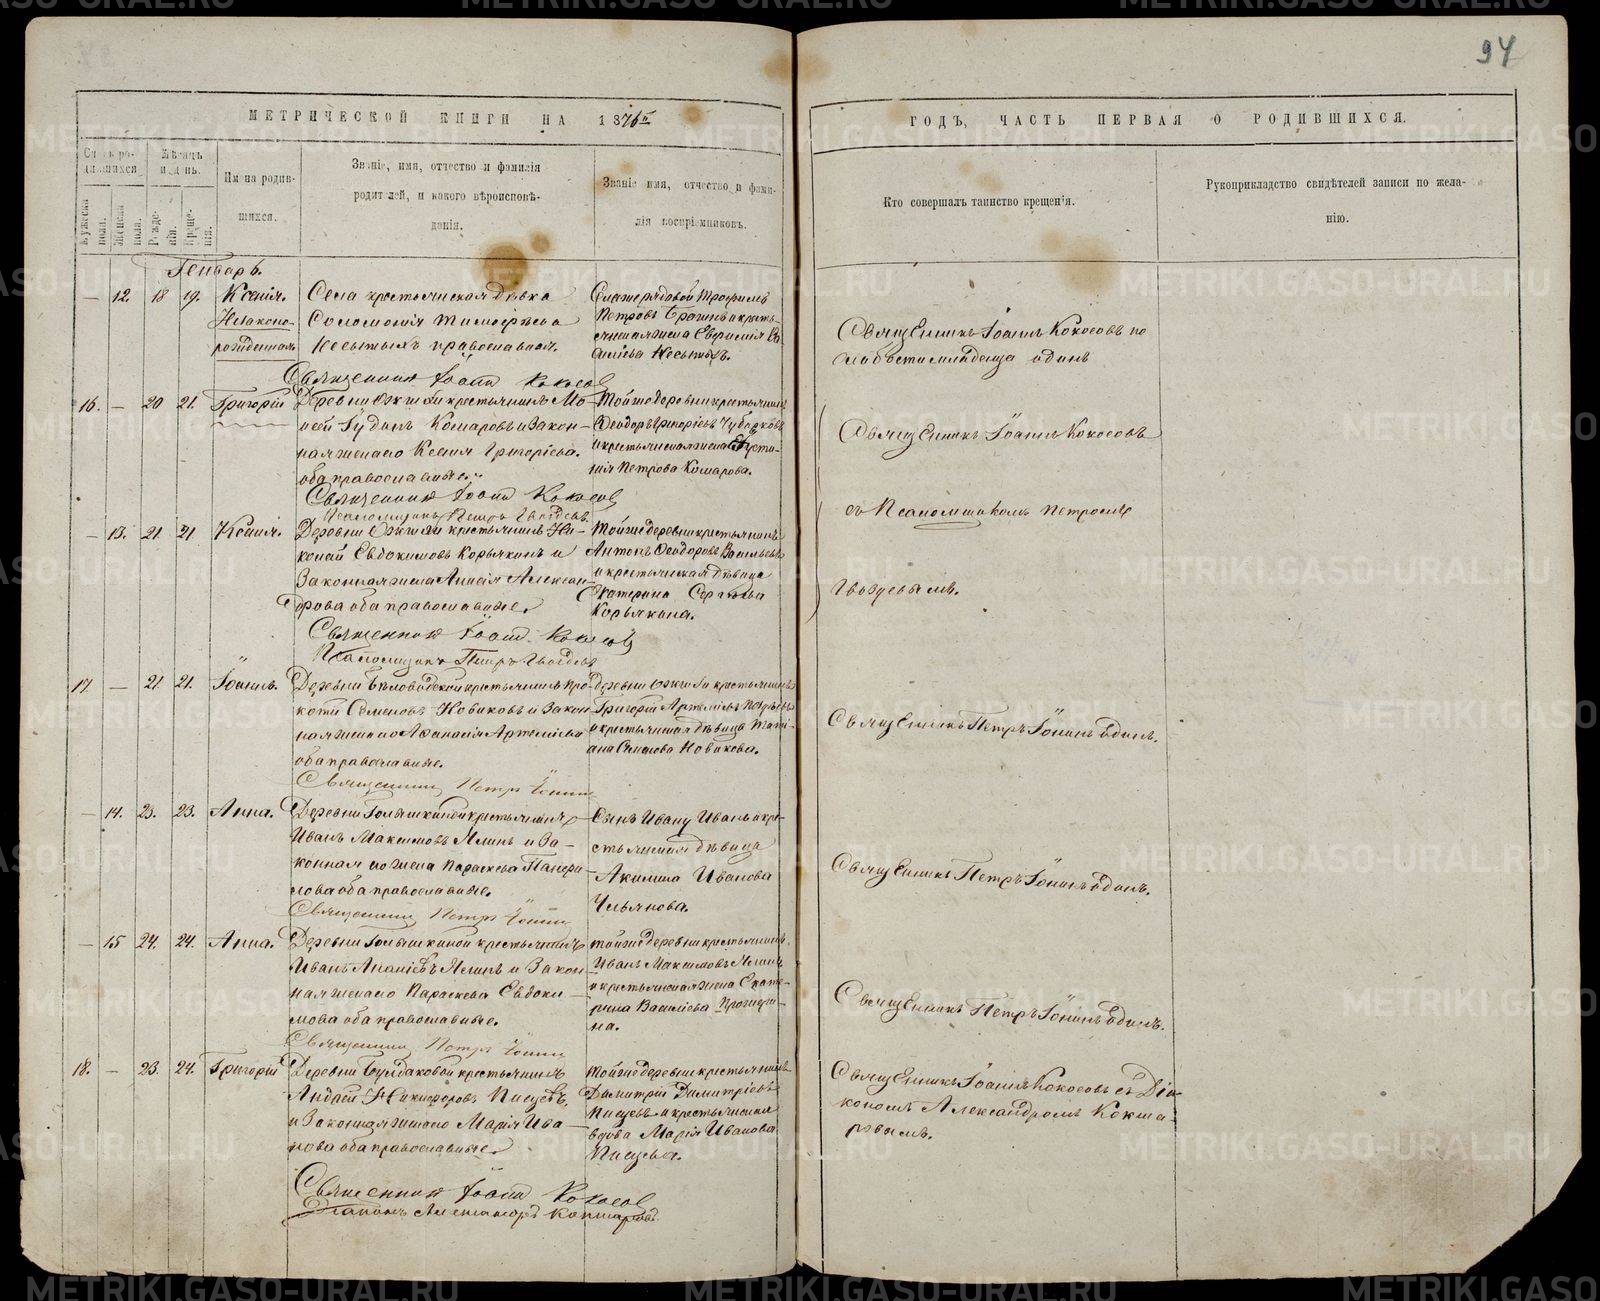 97
МЕТРИЧЕСКОЙ КНИГИ НА 1876й
ГОДЪ, ЧАСТЬ ПЕРВАЯ О РОДИВШИХСЯ.
Счетъ родившихся
Мужеска пола.
Женска пола.
Мѣсяцъ и день.
Рожденія.
Крещенія.
Имена родившихся.
Званіе, имя, отчество и фамилія
родителей, и какого вѣроисповѣ-
данія.
Званіе имя, отчество и фами-
лія воспріемниковъ.
Кто совершалъ таинство крещенія.
Рукоприкладство свидѣтелей записи по жела-
нію.
Генварь.
— 12. 18 19. Ксенія.
Незаконо-
рожденная
Села крестьянская дѣвка
Соломонія Тимофѣева
православная.
Петровъ и кресть-
янская жена Евфимія Ва-
Священникъ Іоаннъ Кокосовъ по
слабости младенца одинъ
Священникъ Іоаннъ Кокосовъ
16. — 20 21. Григорій
Деревни крестьянинъ Мо-
исей Комаровъ и закон-
ная жена его Ксенія Григорієва.
оба православные.
Той же деревни крестьянинъ
Ѳеодоръ Григоріевъ
и крестьянская жена
Петрова Комарова.
Священникъ Іоаннъ Кокосовъ
Священникъ Іоаннъ Кокосовъ
Псаломщикъ Петръ Гвоздевъ.
съ Псаломщикомъ Петромъ
Гвоздевымъ.
— 13. 21 21 Ксенія.
Деревни крестьянинъ Ни-
колай Евдокимовъ Корякинъ и
законная жена Анисія Алексан-
дрова оба православные.
Той же деревни крестьянинъ
Антонъ Ѳеодоровъ Васильевъ
и крестьянская дѣвица
Екатерина Сергѣева
Корякина.
Священникъ Іоаннъ Кокосовъ
Псаломщикъ Петръ Гвоздевъ
17. — 21. 21. Іоаннъ.
Деревни Бѣловодской крестьянинъ Про-
копій Семеновъ Новиковъ и закон-
ная жена его Аѳанасія Артемьева
оба православные.
Деревни крестьянинъ
Григорій
и крестьянская дѣвица Тати-
ана Новикова.
Священникъ Петръ Іонинъ
Священникъ Петръ Іонинъ одинъ.
— 14. 23. 23. Анна.
Деревни Голышкиной крестьянинъ
Иванъ Максимовъ Ялинъ и за-
конная его жена Параскева Панфи-
лова оба православные.
Сынъ Ивану Иванъ и кре-
стьянская дѣвица
Акилина Иванова
Ульянова.
Священникъ Петръ Іонинъ
Священникъ Петръ Іонинъ одинъ.
— 15 24. 24. Анна.
Деревни Голышкиной крестьянинъ
Иванъ Ананіевъ Ялинъ и закон-
ная жена его Параскева Евдоки-
мова оба православные.
Той же деревни крестьянинъ
Иванъ Максимовъ Ялинъ
и крестьянская жена Екате-
рина Васильева
на.
Священникъ Петръ Іонинъ
Священникъ Петръ Іонинъ одинъ.
18. — 23. 24. Григорій
Деревни Булдаковой крестьянинъ
Андрей Никифоровъ Писцевъ,
и законная жена его Марія Ива-
нова оба православные.
Той же деревни крестьянинъ
Димитрій Димитріевъ
Писцевъ и крестьянская
вдова Марія Иванова
Писцева.
Священникъ Іоаннъ Кокосовъ съ Діа-
кономъ Александромъ Кокша-
ровымъ.
Священникъ Іоаннъ Кокосовъ
Діаконъ Александръ Кокшаровъ